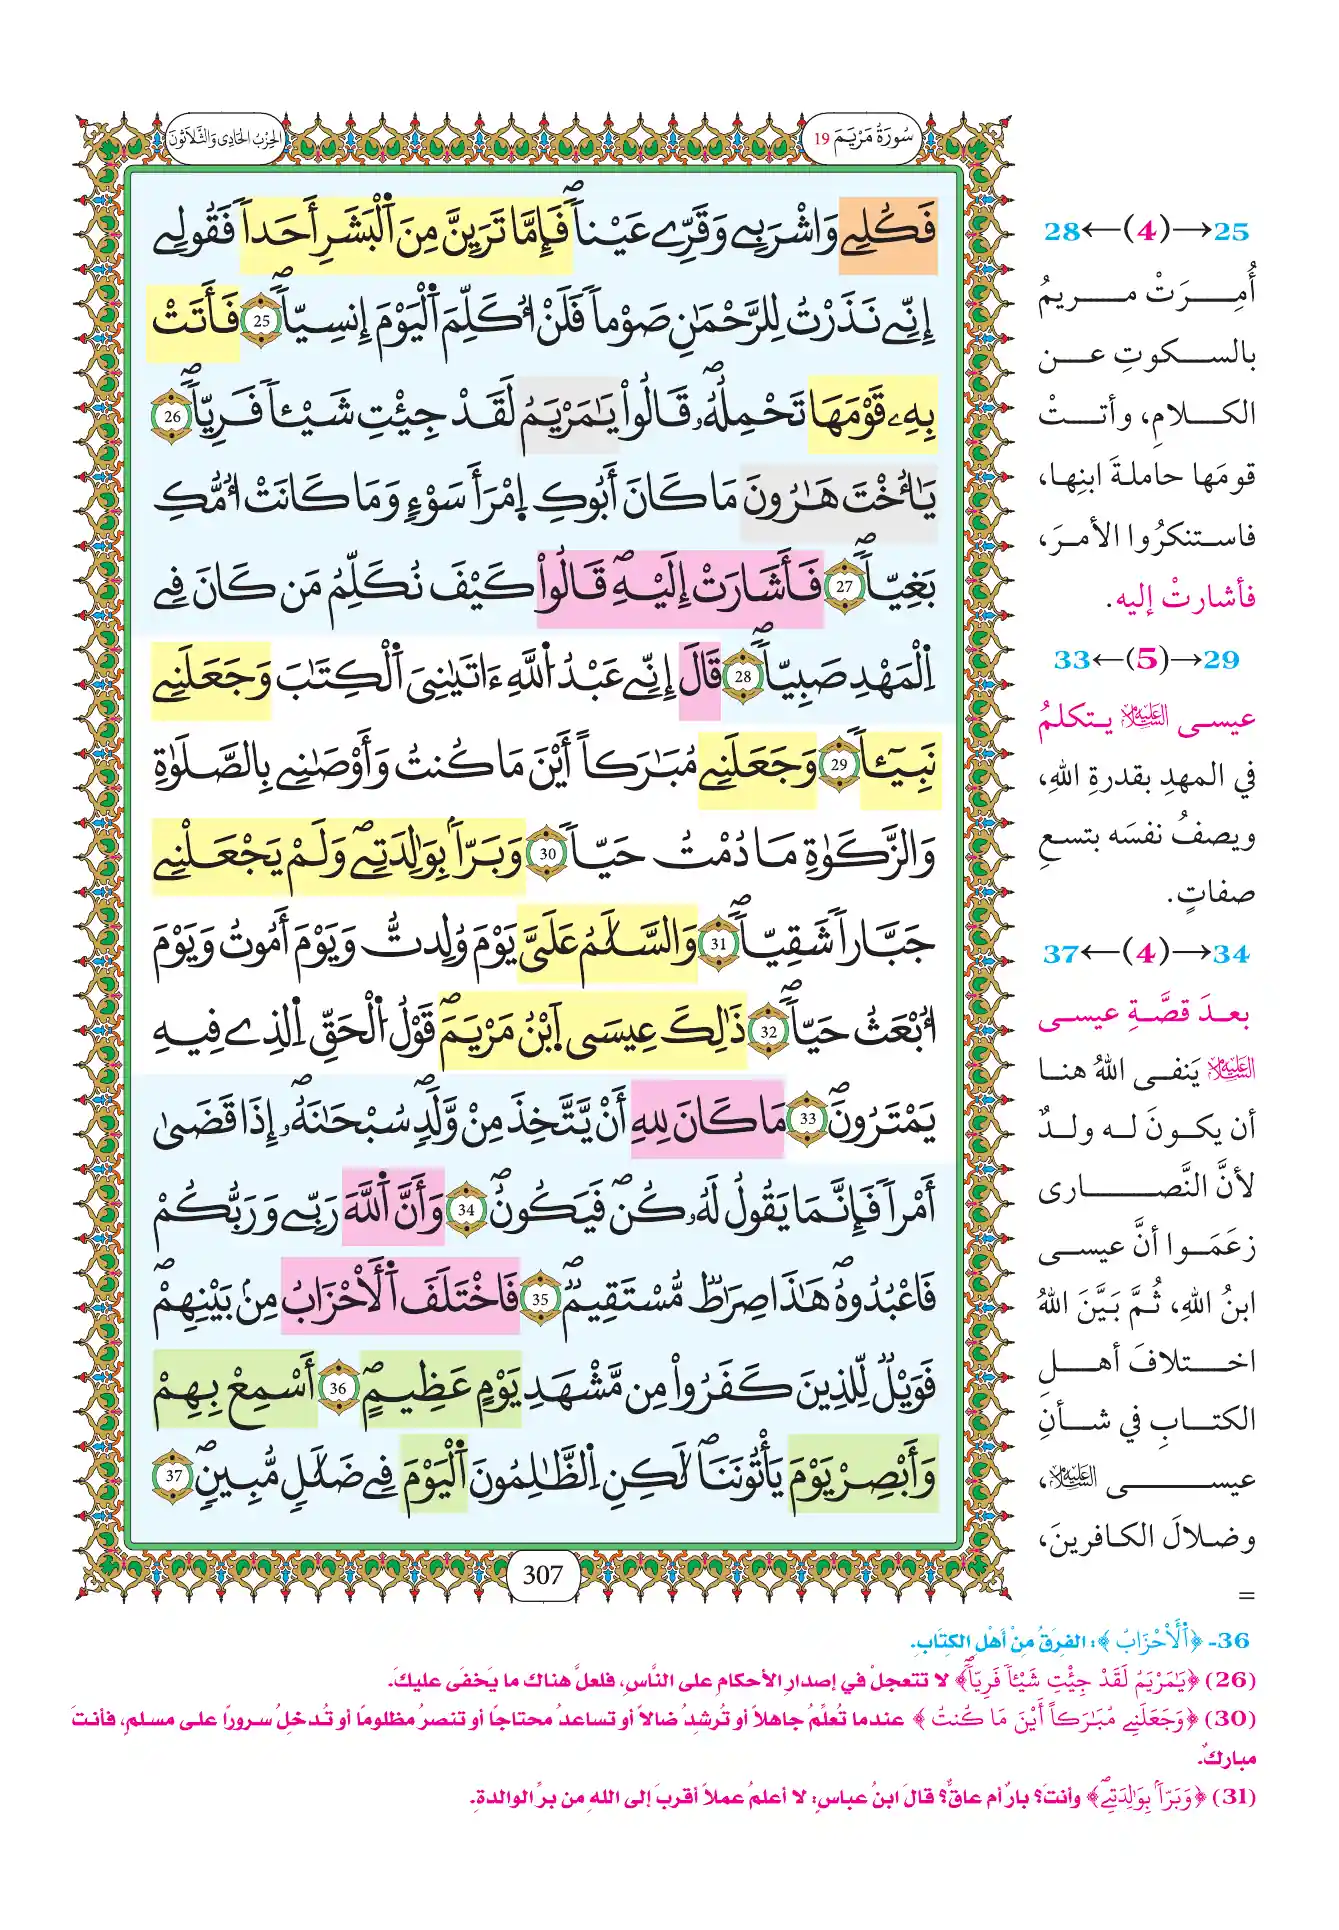 سُورَةُ مَرْيَمَ 19
الحِزْبُ الحَادِي وَالثَّلَاثُونَ
فَكُلِے وَاشْرَبِے وَقَرِّے عَيْناٗۖ فَإِمَّا تَرَيِنَّ مِنَ اَ۬لْبَشَرِ أَحَداٗ فَقُولِے
إِنِّے نَذَرْتُ لِلرَّحْمَٰنِ صَوْماٗ فَلَنْ أُكَلِّمَ اَ۬لْيَوْمَ إِنسِيّاٗۖ 25 فَأَتَتْ
بِهِۦ قَوْمَهَا تَحْمِلُهُۥۖ قَالُواْ يَٰمَرْيَمُ لَقَدْ جِيْتِ شَيْـٔاٗ فَرِيّاٗۖ 26
يَٰٓأُخْتَ هَٰرُونَ مَا كَانَ أَبُوكِ اِ۪مْرَأَ سَوْءٖ وَمَا كَانَتْ أُمُّكِ
بَغِيّاٗۖ 27 فَأَشَارَتْ إِلَيْهِۖ قَالُواْ كَيْفَ نُكَلِّمُ مَن كَانَ فِے
اِ۬لْمَهْدِ صَبِيّاٗۖ 28 قَالَ إِنِّے عَبْدُ اُ۬للَّهِ ءَاتَيٰنِيَ اَ۬لْكِتَٰبَ وَجَعَلَنِے
نَبِيٓـٔاٗ 29 وَجَعَلَنِے مُبَٰرَكاً أَيْنَ مَا كُنتُ وَأَوْصَٰنِے بِالصَّلَوٰةِ
وَالزَّكَوٰةِ مَا دُمْتُ حَيّاٗ 30 وَبَرّاَۢ بِوَٰلِدَتِےۖ وَلَمْ يَجْعَلْنِے
جَبَّاراٗ شَقِيّاٗۖ 31 وَالسَّلَٰمُ عَلَيَّ يَوْمَ وُلِدتُّ وَيَوْمَ أَمُوتُ وَيَوْمَ
أُبْعَثُ حَيّاٗۖ 32 ذَٰلِكَ عِيسَى اَ۪بْنُ مَرْيَمَۖ قَوْلُ اُ۬لْحَقِّ اِ۬لذِے فِيهِ
يَمْتَرُونَۖ 33 مَا كَانَ لِلهِ أَنْ يَّتَّخِذَ مِنْ وَّلَدٖۖ سُبْحَٰنَهُۥۖ إِذَا قَضَىٰٓ
أَمْراٗ فَإِنَّمَا يَقُولُ لَهُۥ كُنۖ فَيَكُونُۖ 34 وَأَنَّ اَ۬للَّهَ رَبِّے وَرَبُّكُمْ
فَاعْبُدُوهُۖ هَٰذَا صِرَٰطٞ مُّسْتَقِيمٞۖ 35 فَاخْتَلَفَ اَ۬لْأَحْزَابُ مِنۢ بَيْنِهِمْۖ
فَوَيْلٞ لِّلذِينَ كَفَرُواْ مِن مَّشْهَدِ يَوْمٍ عَظِيمٍۖ 36 أَسْمِعْ بِهِمْ
وَأَبْصِرْ يَوْمَ يَأْتُونَنَاۖ لَٰكِنِ اِ۬لظَّٰلِمُونَ اَ۬لْيَوْمَ فِے ضَلَٰلٖ مُّبِينٖۖ 37
307
25→(4)←28
أُمِرَتْ مريمُ
بالسكوتِ عن
الكلامِ، وأتتْ
قومَها حاملةَ ابنِها،
فاستنكرُوا الأمرَ،
فأشارتْ إليه.
29→(5)←33
عيسى عليه السلام يتكلمُ
في المهدِ بقدرةِ اللهِ،
ويصفُ نفسَه بتسعِ
صفاتٍ.
34→(4)←37
بعدَ قصَّةِ عيسى
عليه السلام يَنفي اللهُ هنا
أن يكونَ له ولدٌ
لأنَّ النَّصارى
زعَمَوا أنَّ عيسى
ابنُ اللهِ، ثُمَّ بَيَّنَ اللهُ
اختلافَ أهلِ
الكتابِ في شأنِ
عيسى عليه السلام،
وضلالَ الكافرينَ،
=
36- ﴿اَ۬لْأَحْزَابُ﴾: الفرَقُ مِنْ أهْلِ الكِتَابِ.
(26) ﴿يَٰمَرْيَمُ لَقَدْ جِيْتِ شَيْـٔاٗ فَرِيّاٗۖ﴾ لا تتعجلْ في إصدارِ الأحكامِ على النَّاسِ، فلعلَّ هناك ما يَخفَى عليكَ.
(30) ﴿وَجَعَلَنِے مُبَٰرَكاً أَيْنَ مَا كُنتُ﴾ عندما تُعلِّمُ جاهلاً أو تُرشدُ ضالاً أو تساعدُ محتاجاً أو تنصرُ مظلوماً أو تُدخلُ سروراً على مسلمٍ، فأنتَ
مباركٌ.
(31) ﴿وَبَرّاَۢ بِوَٰلِدَتِےۖ﴾ وأنتَ؟ بارٌ أم عاقٌّ؟ قالَ ابنُ عباسٍ: لا أعلمُ عملاً أقربَ إلى اللهِ من برِّ الوالدةِ.